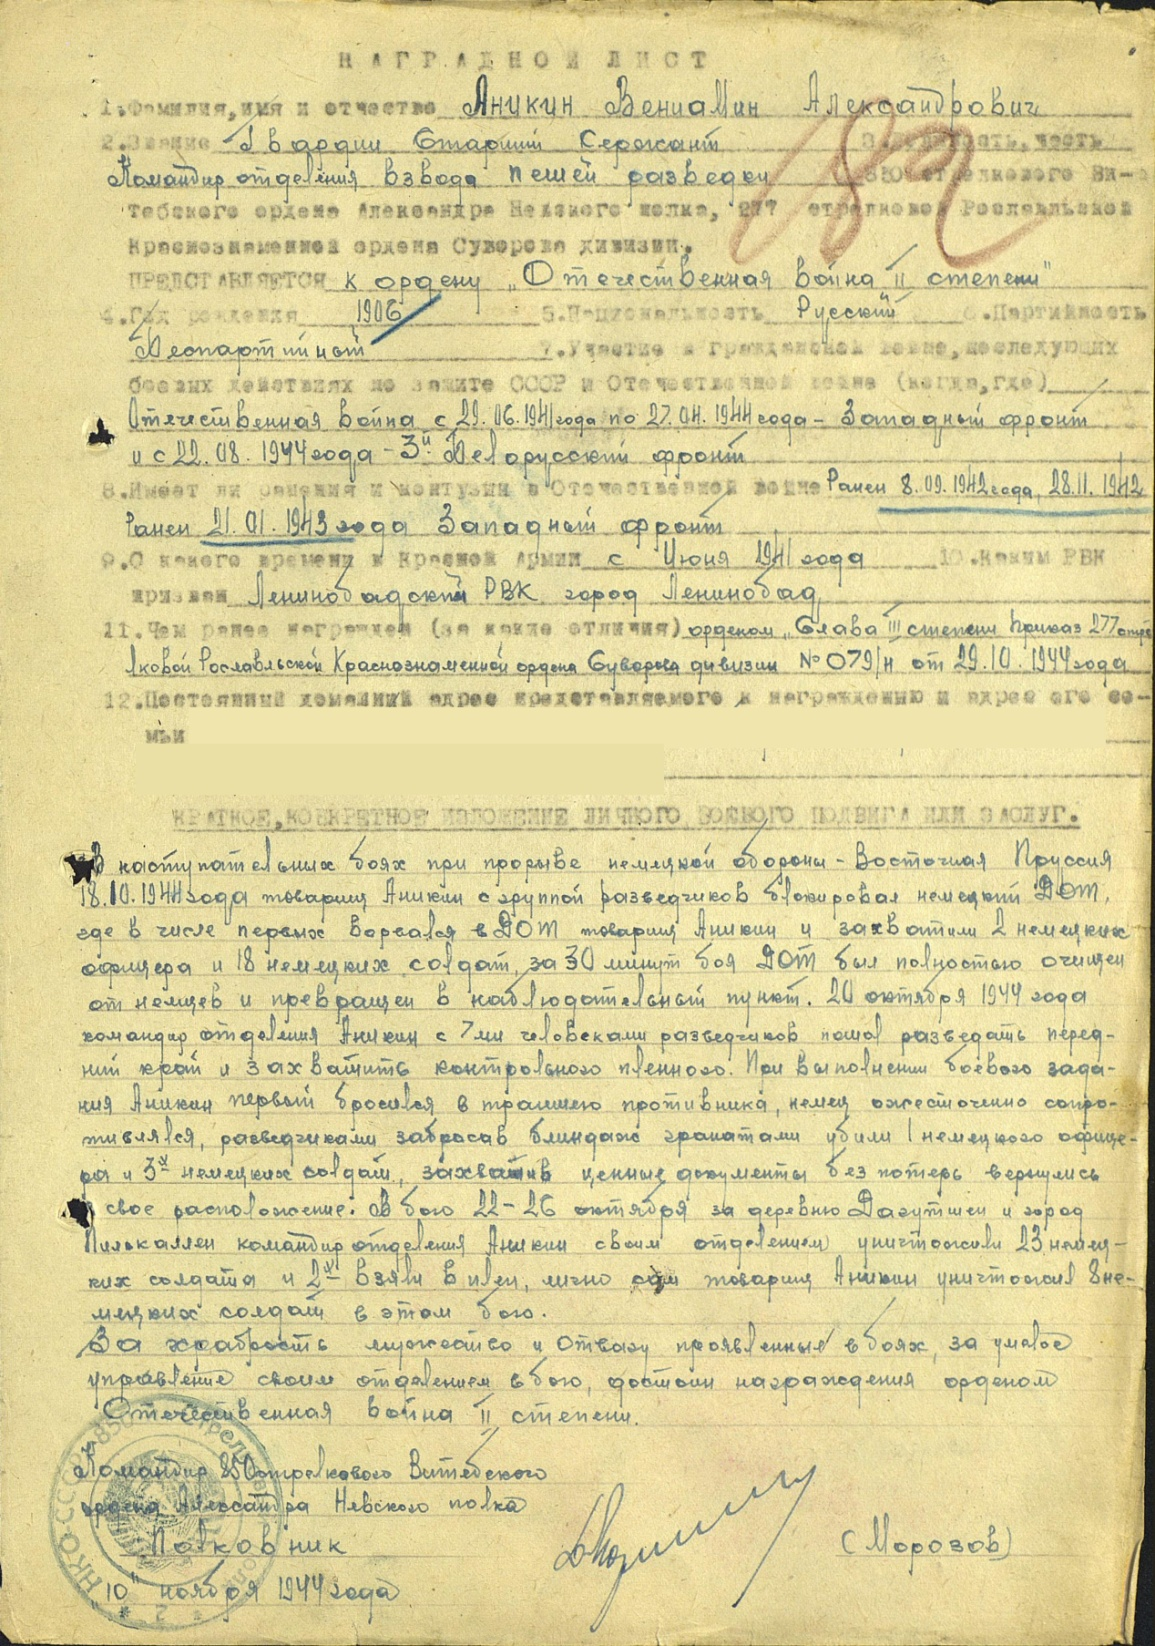 НАГРАДНОЙ ЛИСТ
1.Фамилия,имя и отчество Аникин Вениамин Александрович
2.Звание Гвардии Старший Сержант 3.Должность,часть
Командир отделения взвода пешей разведки 850 стрелкового Ви-
тебского ордена Александра Невского полка, 277 стрелковой Рославльской
Краснознаменной ордена Суворова дивизии.
182
ПРЕДСТАВЛЯЕТСЯ к ордену „Отечественная война II степени"
4.Год рождения 1906 5.Национальность Русский 6.Партийность
Беспартийный 7.Участие в гражданской войне,последующих
боевых действиях по защите СССР и Отечественной войне (когда,где)
Отечественная война с 29.06.1941 года по 27.04.1944 года - Западный фронт
и с 22.08.1944 года - 3й Белорусский фронт
8.Имеет ли ранения и контузии в Отечественной войне Ранен 8.09.1942 года, 28.11.1942
Ранен 21.01.1943 года Западный фронт
9.С какого времени в Красной Армии с Июня 1941 года 10.Каким РВК
призван Ленинобадский РВК город Ленинобад
11.Чем ранее награжден (за какие отличия) орденом „Слава III степени приказ 277 стре
лковой Рославльской Краснознаменной ордена Суворова дивизии № 079/н от 29.10.1944 года
12.Постоянный домашний адрес представляемого к награждению и адрес его се-
мьи
КРАТКОЕ,КОНКРЕТНОЕ ИЗЛОЖЕНИЕ ЛИЧНОГО БОЕВОГО ПОДВИГА ИЛИ ЗАСЛУГ.
В наступательных боях при прорыве немецкой обороны - Восточная Пруссия
18.10.1944 года товарищ Аникин с группой разведчиков блокировал немецкий ДОТ,
где в числе первых ворвался в ДОТ товарищ Аникин и захватили 2 немецких
офицера и 18 немецких солдат, за 30 минут боя ДОТ был полностью очищен
от немцев и превращен в наблюдательный пункт. 20 октября 1944 года
командир отделения Аникин с 7ми человеками разведчиков пошол разведать перед-
ний край и захватить контрольного пленного. При выполнении боевого зада-
ния Аникин первый бросился в траншею противника, немец ожесточенно сопро-
тивлялся, разведчиками забросав блиндаж гранатами убили 1 немецкого офице-
ра и 3х немецких солдат, захватив ценные документы без потерь вернулись
в свое расположение. В бою 22-26 октября за деревню Дагутшен и город
Пилькаллен командир отделения Аникин своим отделением уничтожили 23 немец-
ких солдата и 2х взяли в плен, лично сам товарищ Аникин уничтожил 8 не-
мецких солдат в этом бою.
За храбрость мужество и отвагу проявленные в боях, за умелое
управление своим отделением в бою, достоин награждения орденом
Отечественная война II степени.
Командир 850 стрелкового Витебского
ордена Александра Невского полка
Полковник (Морозов)
10" ноября 1944 года